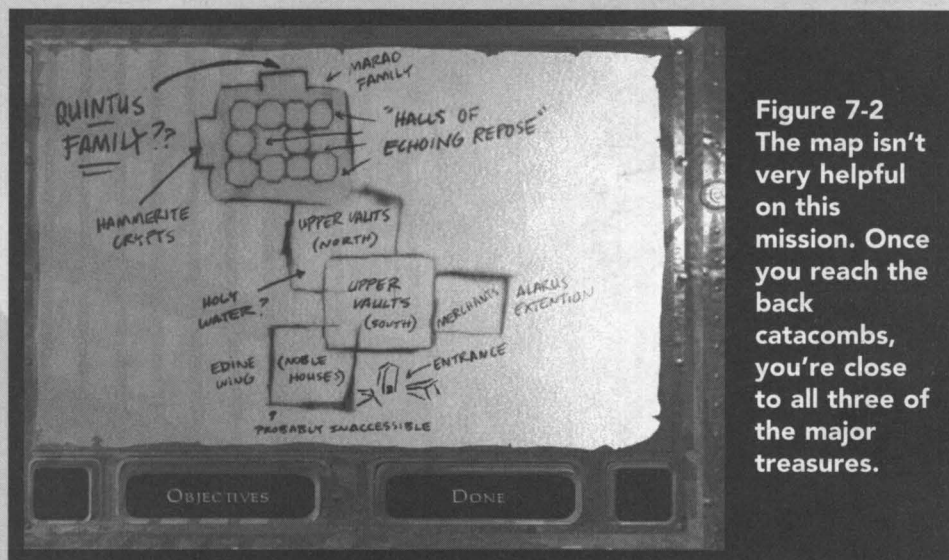 QUINTUS
FAMILY??
MARAD
FAMILY
"HALLS OF
ECHOING REPOSE"
HAMMERITE
CRYPTS
UPPER VAULTS
(NORTH)
HOLY
WATER?
UPPER
VAULTS
(SOUTH)
MERCHANTS
ALARUS
EXTENTION
EDINE
WING
(NOBLE
HOUSES)
ENTRANCE
?
PROBABLY INACCESSIBLE
OBJECTIVES
DONE
Figure 7-2
The map isn't
very helpful
on this
mission. Once
you reach the
back
catacombs,
you're close
to all three of
the major
treasures.